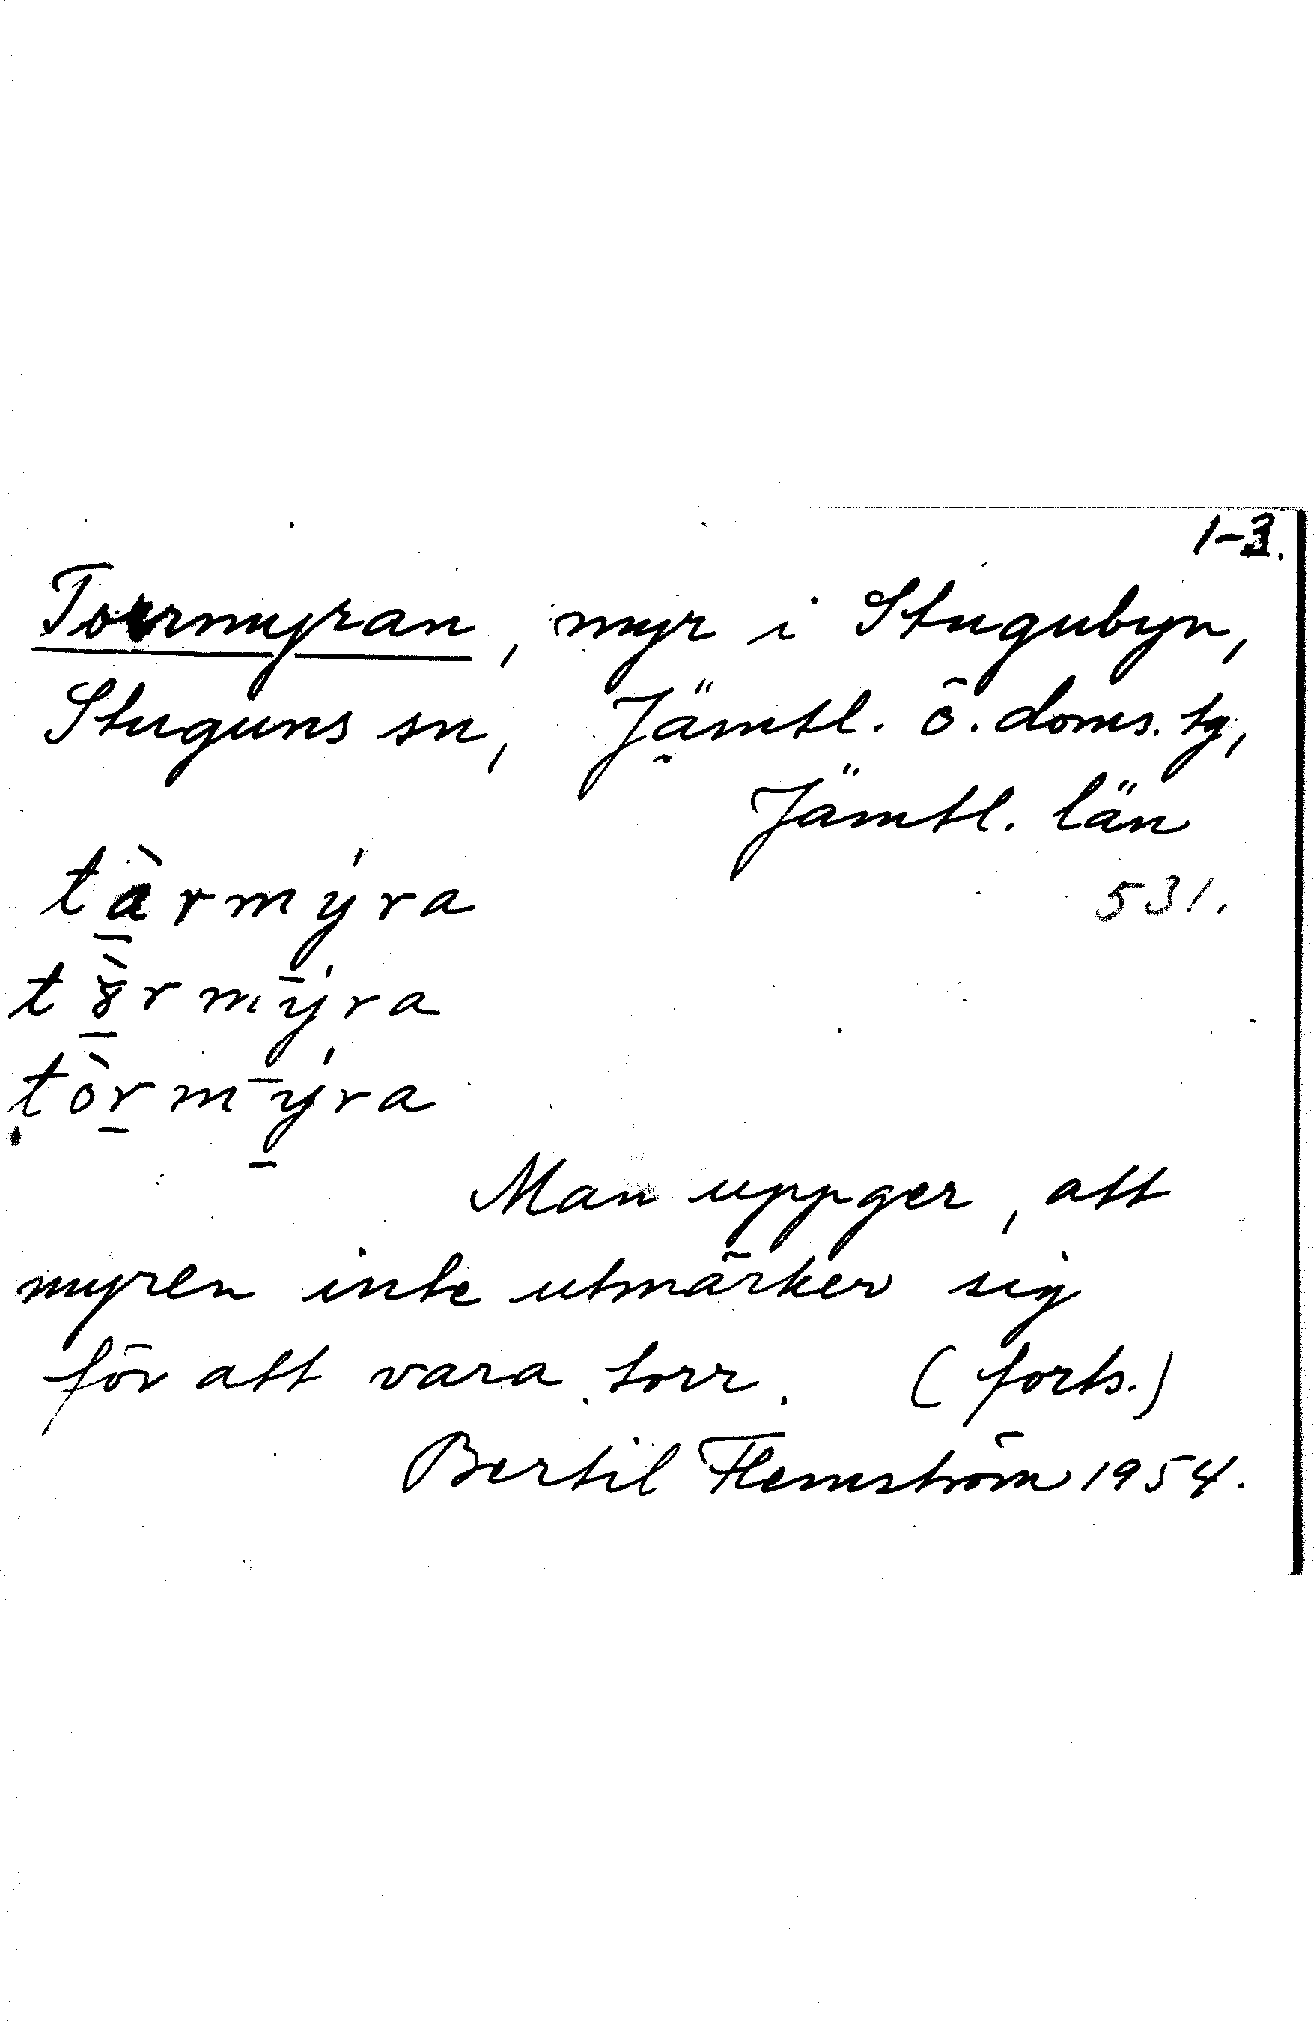 1-3.
Torrmyran, myr i Stugubyn,
Stuguns sn, Jämtl. ö. doms. tg,
Jämtl. län
tàrmýra
531.
t8̀rmýra
tòrmýra
Man uppger, att
myren inte utmärker sig
för att vara torr. (forts.)
Bertil Flemström 1954.